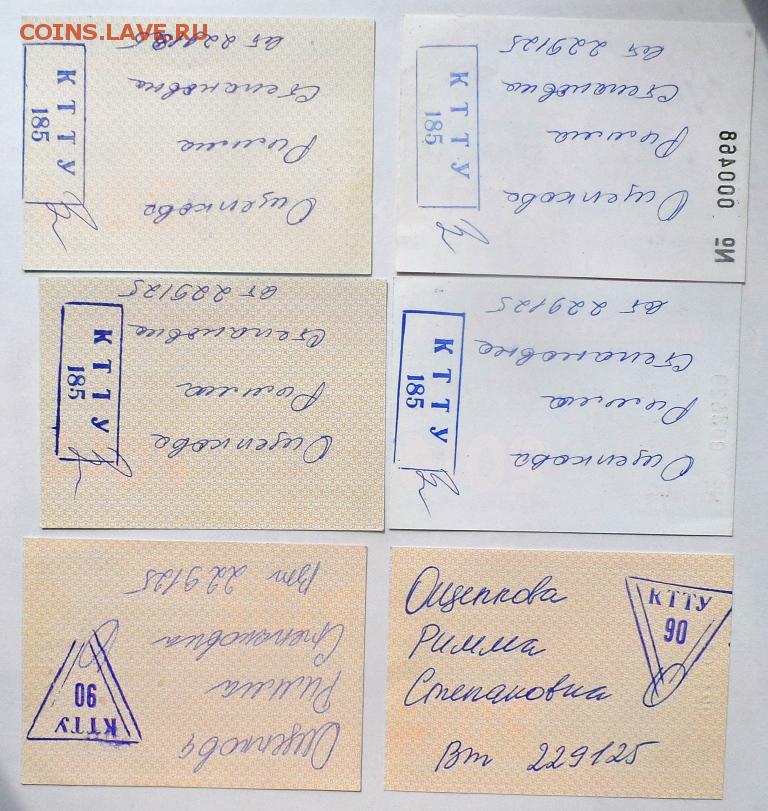 COINS.LAVE.RU
вт 229125
Степановна
Римма
Ощепкова
КТТУ
185
вт 229125
Степановна
Римма
Ощепкова
КТТУ
185
№ 000468
вт 229125
Степановна
Римма
Ощепкова
КТТУ
185
вт 229125
Степановна
Римма
Ощепкова
КТТУ
185
Вт 229125
Степановна
Римма
Ощепкова
КТТУ
90
Ощепкова
Римма
Степановна
Вт 229125
КТТУ
90